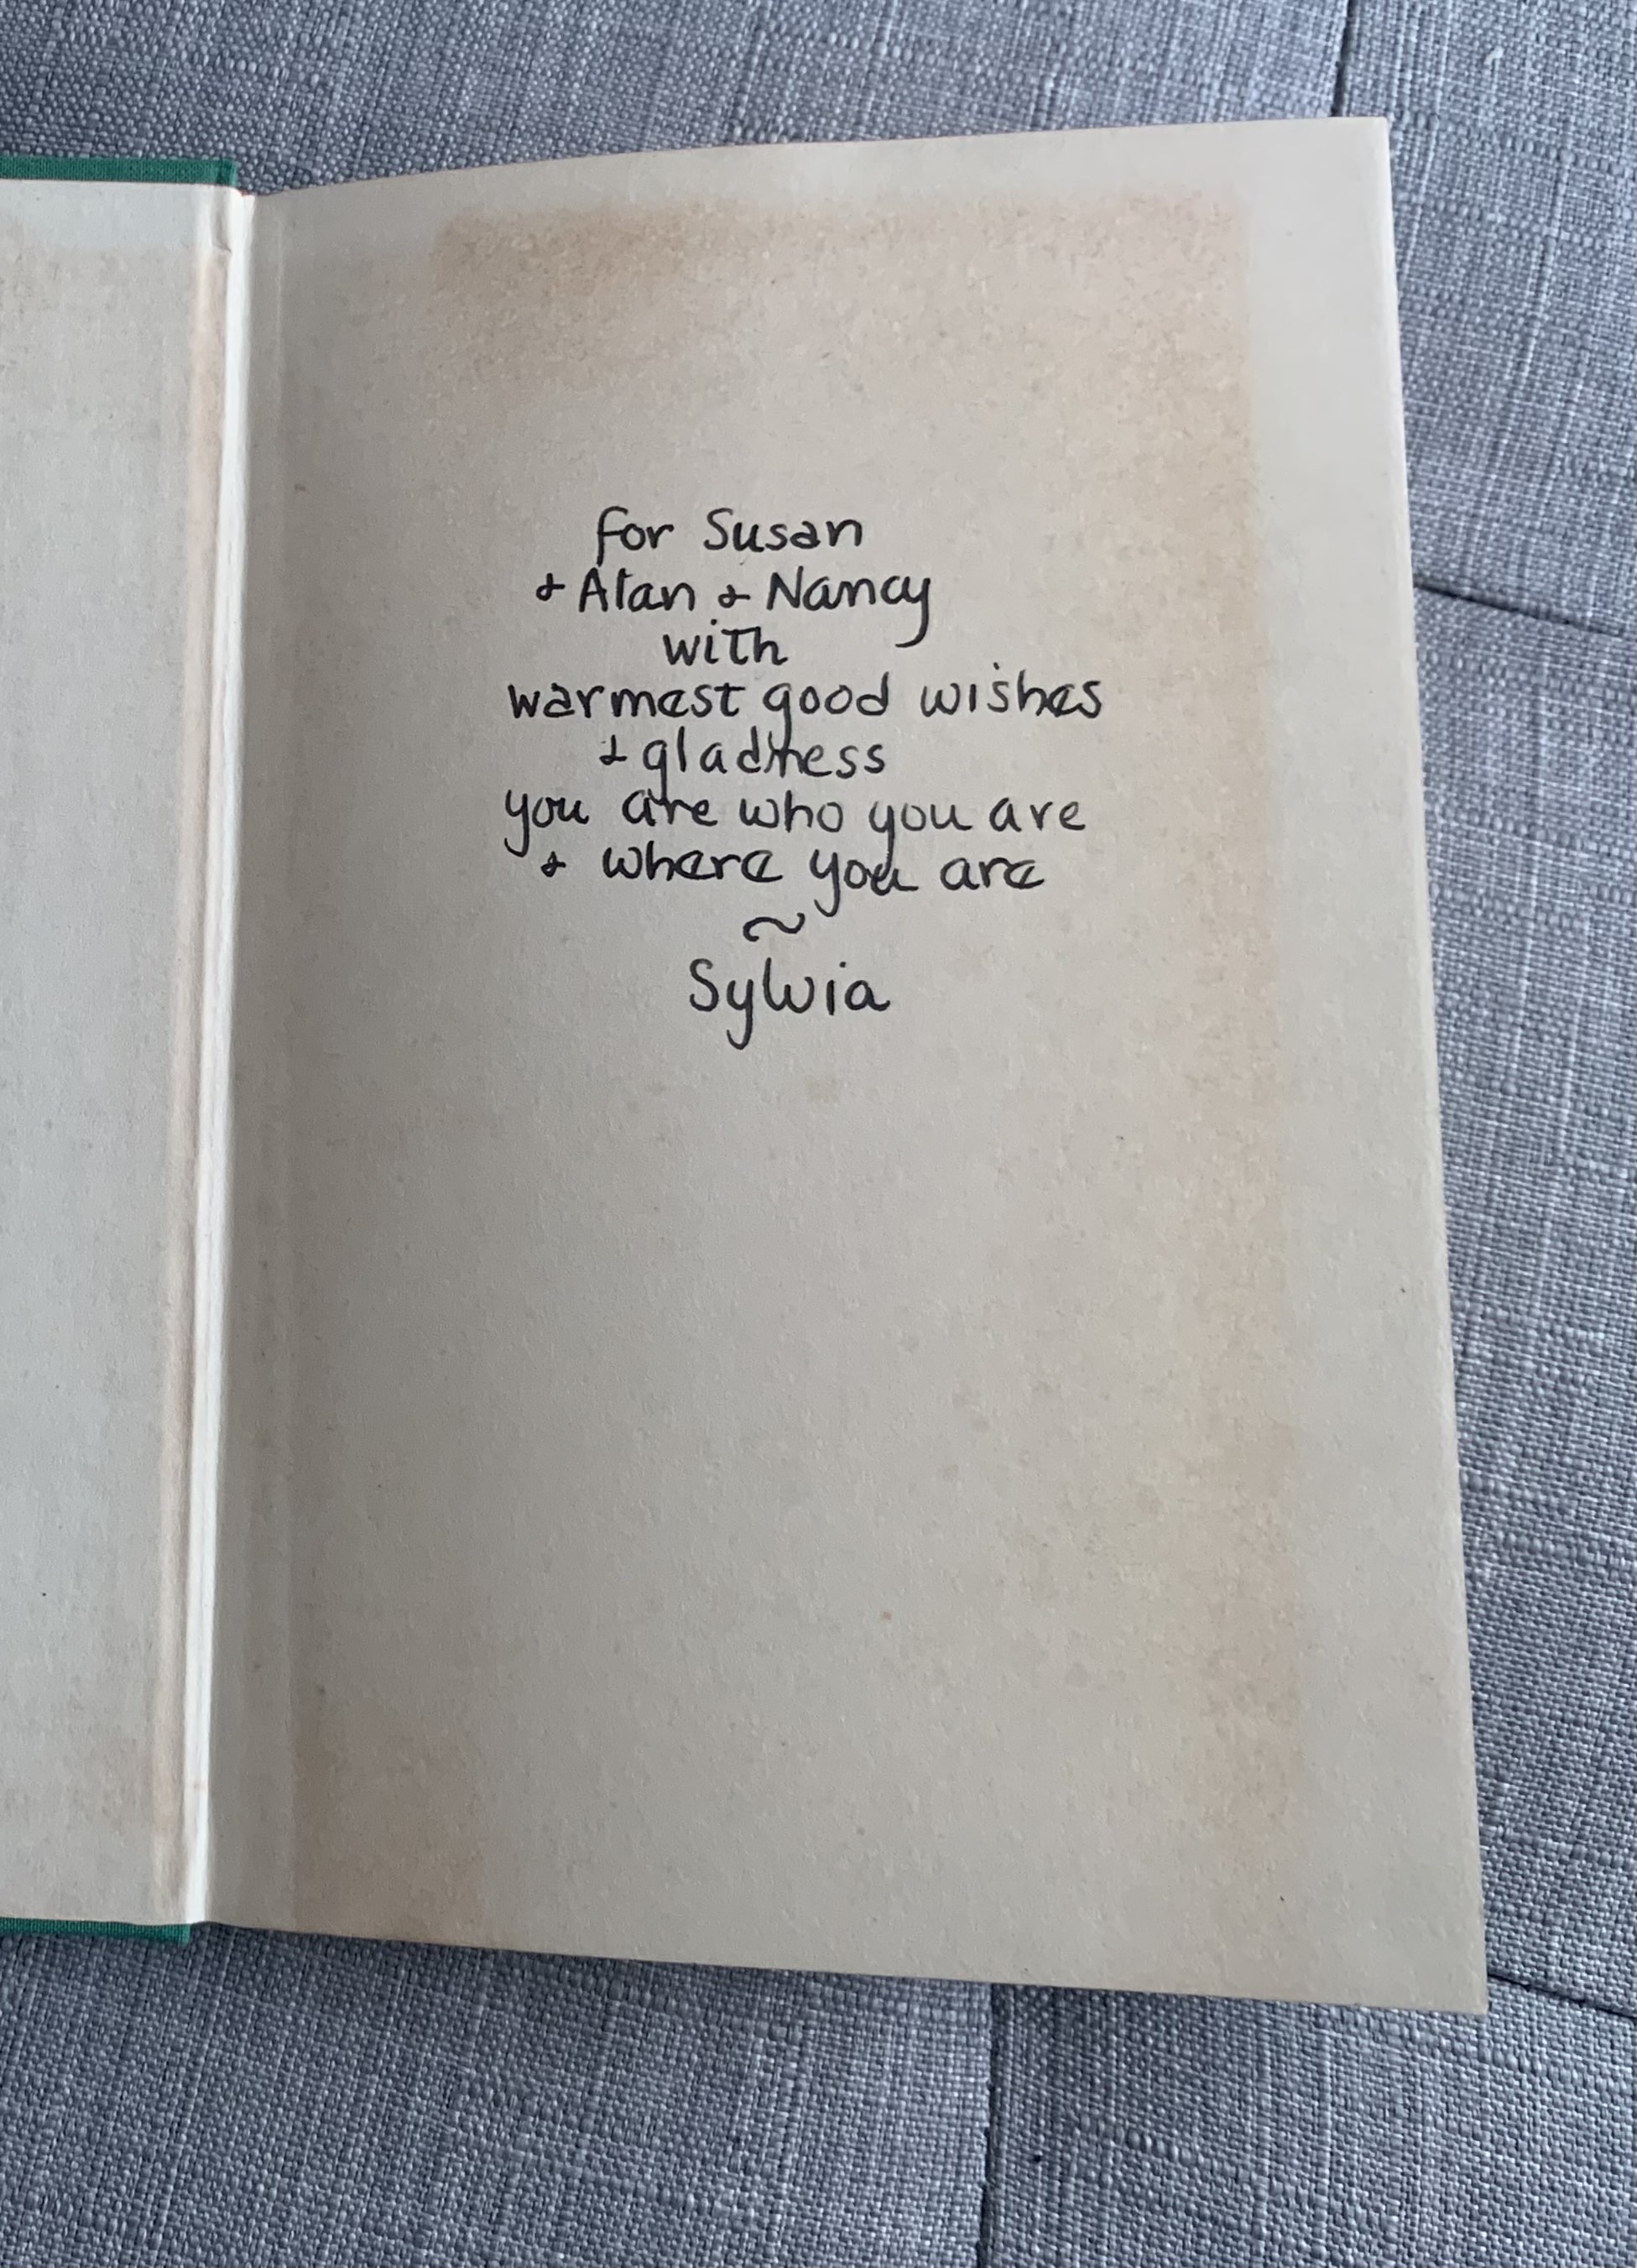 for Susan
+ Alan + Nancy
with
warmest good wishes
+ gladness
you are who you are
+ where you are
~
Sylvia